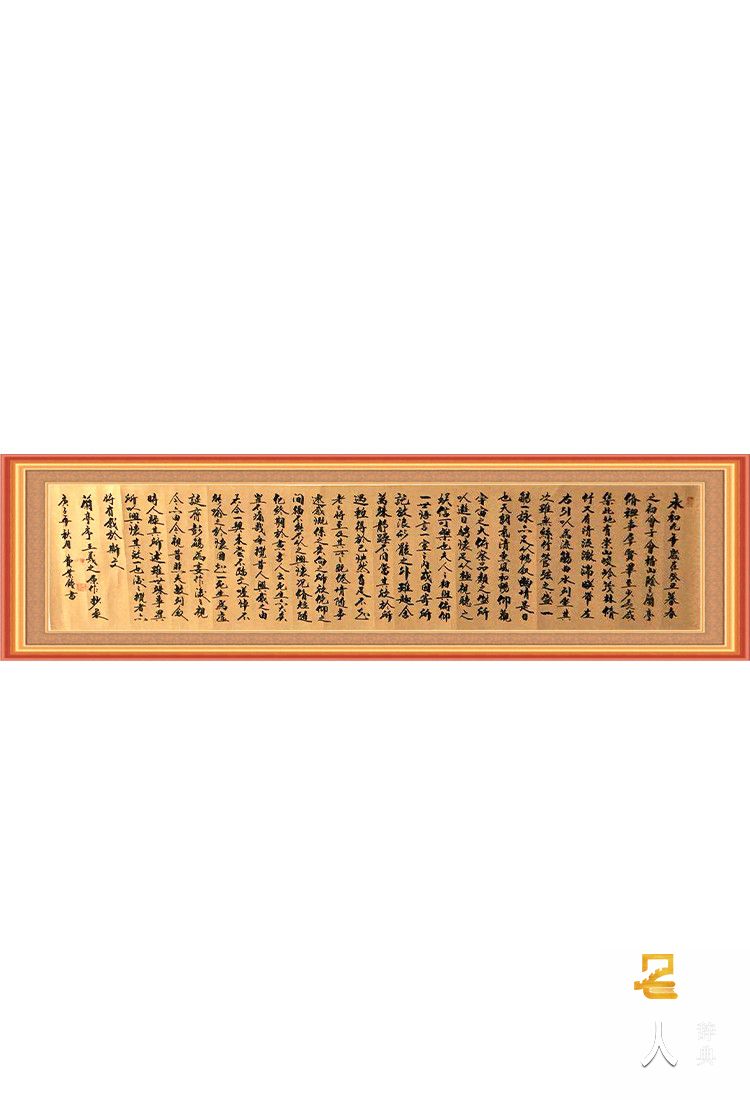 永和九年歲在癸丑暮春
之初會于會稽山陰之蘭亭
脩禊事也羣賢畢至少長咸
集此地有崇山峻領茂林脩
竹又有清流激湍暎帶左
右引以為流觴曲水列坐其
次雖無絲竹管弦之盛一
觴一詠亦足以暢叙幽情是日
也天朗氣清惠風和暢仰觀
宇宙之大俯察品類之盛所
以遊目騁懷足以極視聽之
娛信可樂也夫人之相與俯仰
一世悟言一室之內或因寄所
託放浪形骸之外雖趣舍
萬殊靜躁不同當其欣於所
遇暫得於己快然自足不知
老將至及其所之既惓情隨事
遷感慨係之矣向之所欣俛仰之
間猶不能不以之興懷況脩短隨
化終期於盡古人云死生亦大矣
豈不痛哉每攬昔人興感之由
若合一契未嘗不臨文嗟悼不
能喻之於懷固知一死生為虛
誕齊彭殤為妄作後之視
今亦由今視昔悲夫故列叙
時人錄其所述雖世殊事異
所以興懷其致一也後之攬者亦
將有感於斯文
蘭亭序王羲之原作抄录
庚子年秋月
人
辞典